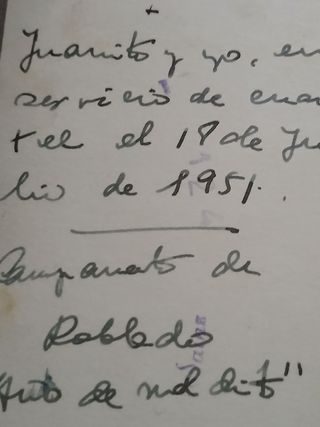 Juanito y yo, en
servicio de cuar
tel el 18 de Ju
lio de 1951.
Campamento de
Robledo
de